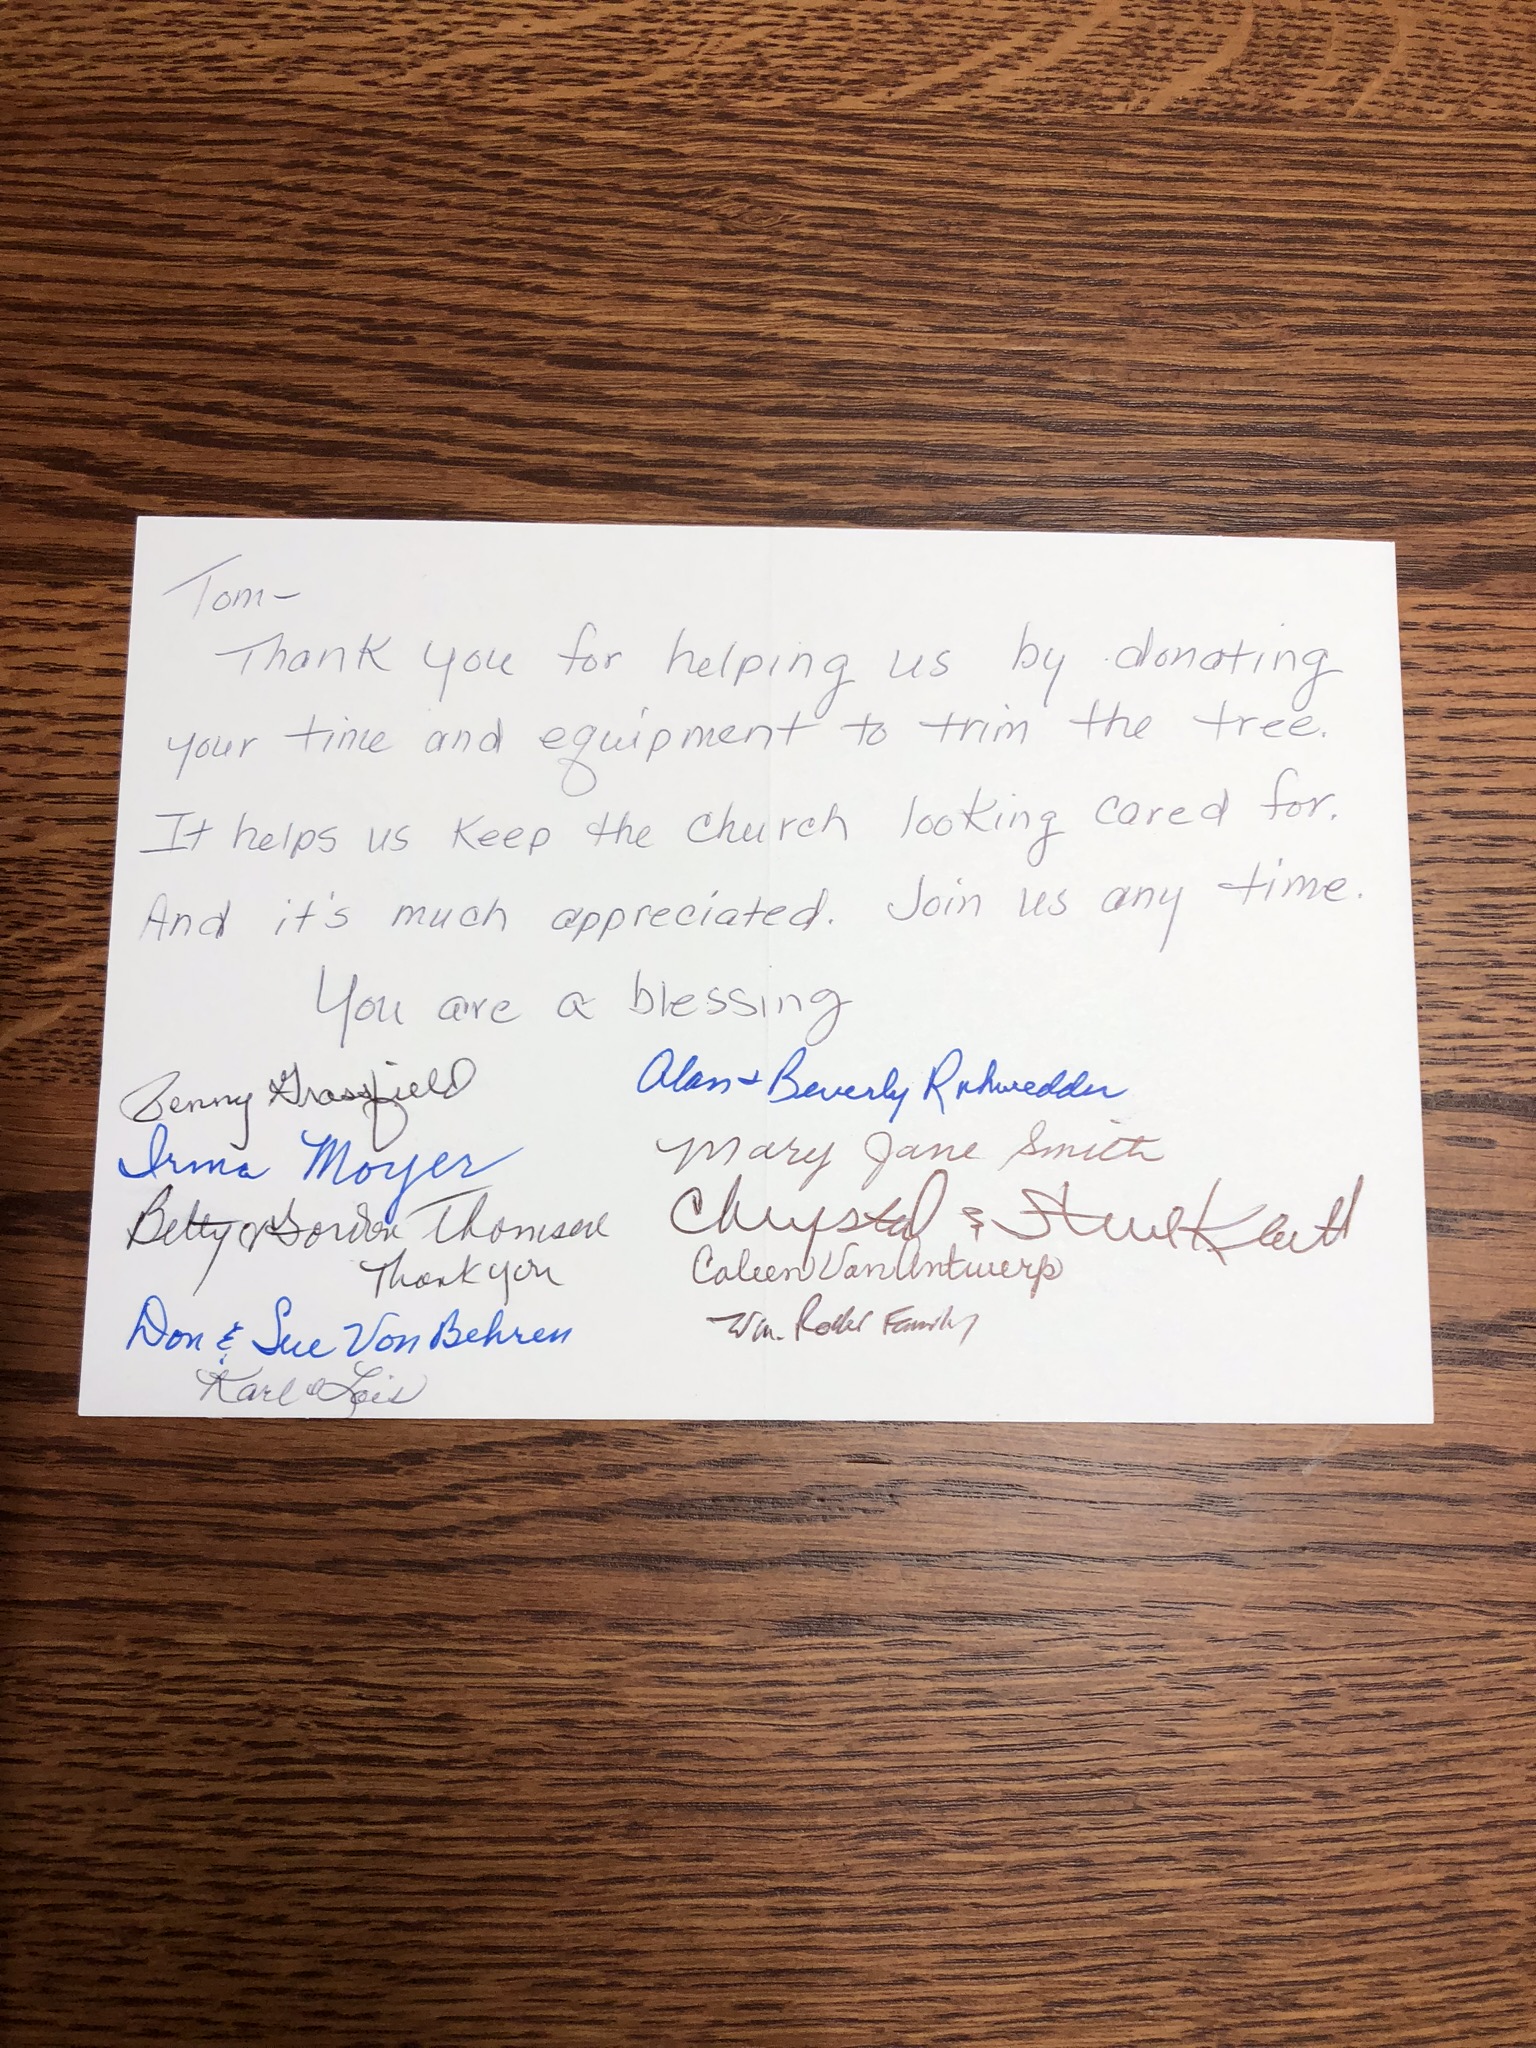 Tom-
Thank you for helping us by donating
your time and equipment to trim the tree.
It helps us keep the church looking cared for.
And it's much appreciated. Join us any time.
You are a blessing
Penny Grassfield
Irma Moyer
Betty & Gordon Thomsen
Thank you
Don & Sue VonBehren
Karl & Lois
Alan + Beverly Rohwedder
Mary Jane Smith
Chrystal & Steve
Coleen VanAntwerp
Wm. Family